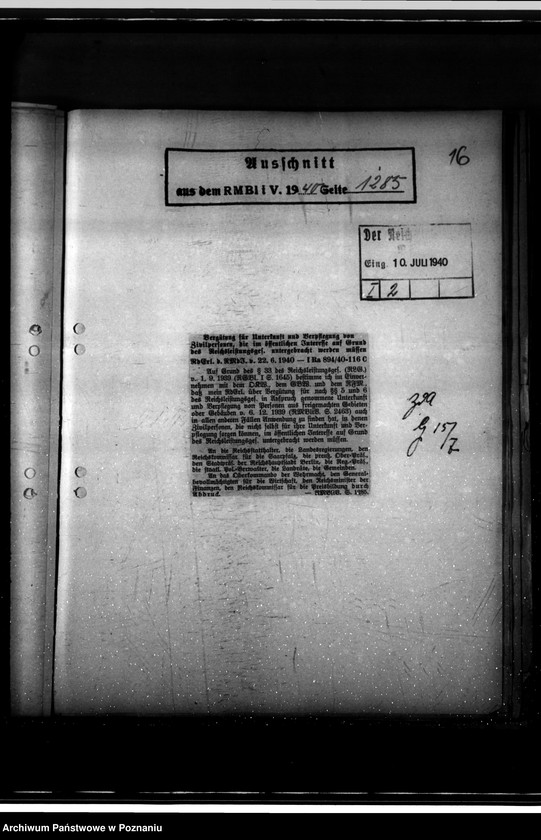 16
Ausschnitt
aus dem RMBliV. 1940 Seite 1285
Der Reich
Eing. 10. JULI 1940
I 2
Vergütung für Unterkunft und Verpflegung von
Zivilpersonen, die im öffentlichen Interesse auf Grund
des Reichsleistungsges. untergebracht werden müssen
RdErl. d. RMdI. v. 22. 6. 1940 — I Ra 894/40-116 C
Auf Grund des § 33 des Reichsleistungsges. (RLG.)
v. 1. 9. 1939 (RGBl. I S. 1645) bestimme ich im Einver-
nehmen mit dem OKW., dem GBW. und dem RFM.,
daß mein RdErl. über Vergütung für nach §§ 5 und 6
des Reichsleistungsges. in Anspruch genommene Unterkunft
und Verpflegung von Personen aus freigemachten Gebieten
oder Gebäuden v. 6. 12. 1939 (RMBliV. S. 2463) auch
in allen anderen Fällen Anwendung zu finden hat, in denen
Zivilpersonen, die nicht selbst für ihre Unterkunft und Ver-
pflegung sorgen können, im öffentlichen Interesse auf Grund
des Reichsleistungsges. untergebracht werden müssen.
An die Reichsstatthalter, die Landesregierungen, den
Reichskommissar für die Saarpfalz, die preuß. Ober-Präs.,
den Stadtpräs. der Reichshauptstadt Berlin, die Reg.-Präs.,
die staatl. Pol.-Verwalter, die Landräte, die Gemeinden.
An das Oberkommando der Wehrmacht, den General-
bevollmächtigten für die Wirtschaft, den Reichsminister der
Finanzen, den Reichskommissar für die Preisbildung durch
Abdruck. — RMBliV. S. 1285.
15/7
Archiwum Państwowe w Poznaniu